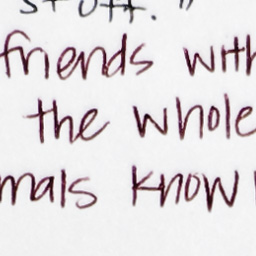 stuff."
friends with
the whole
mals know